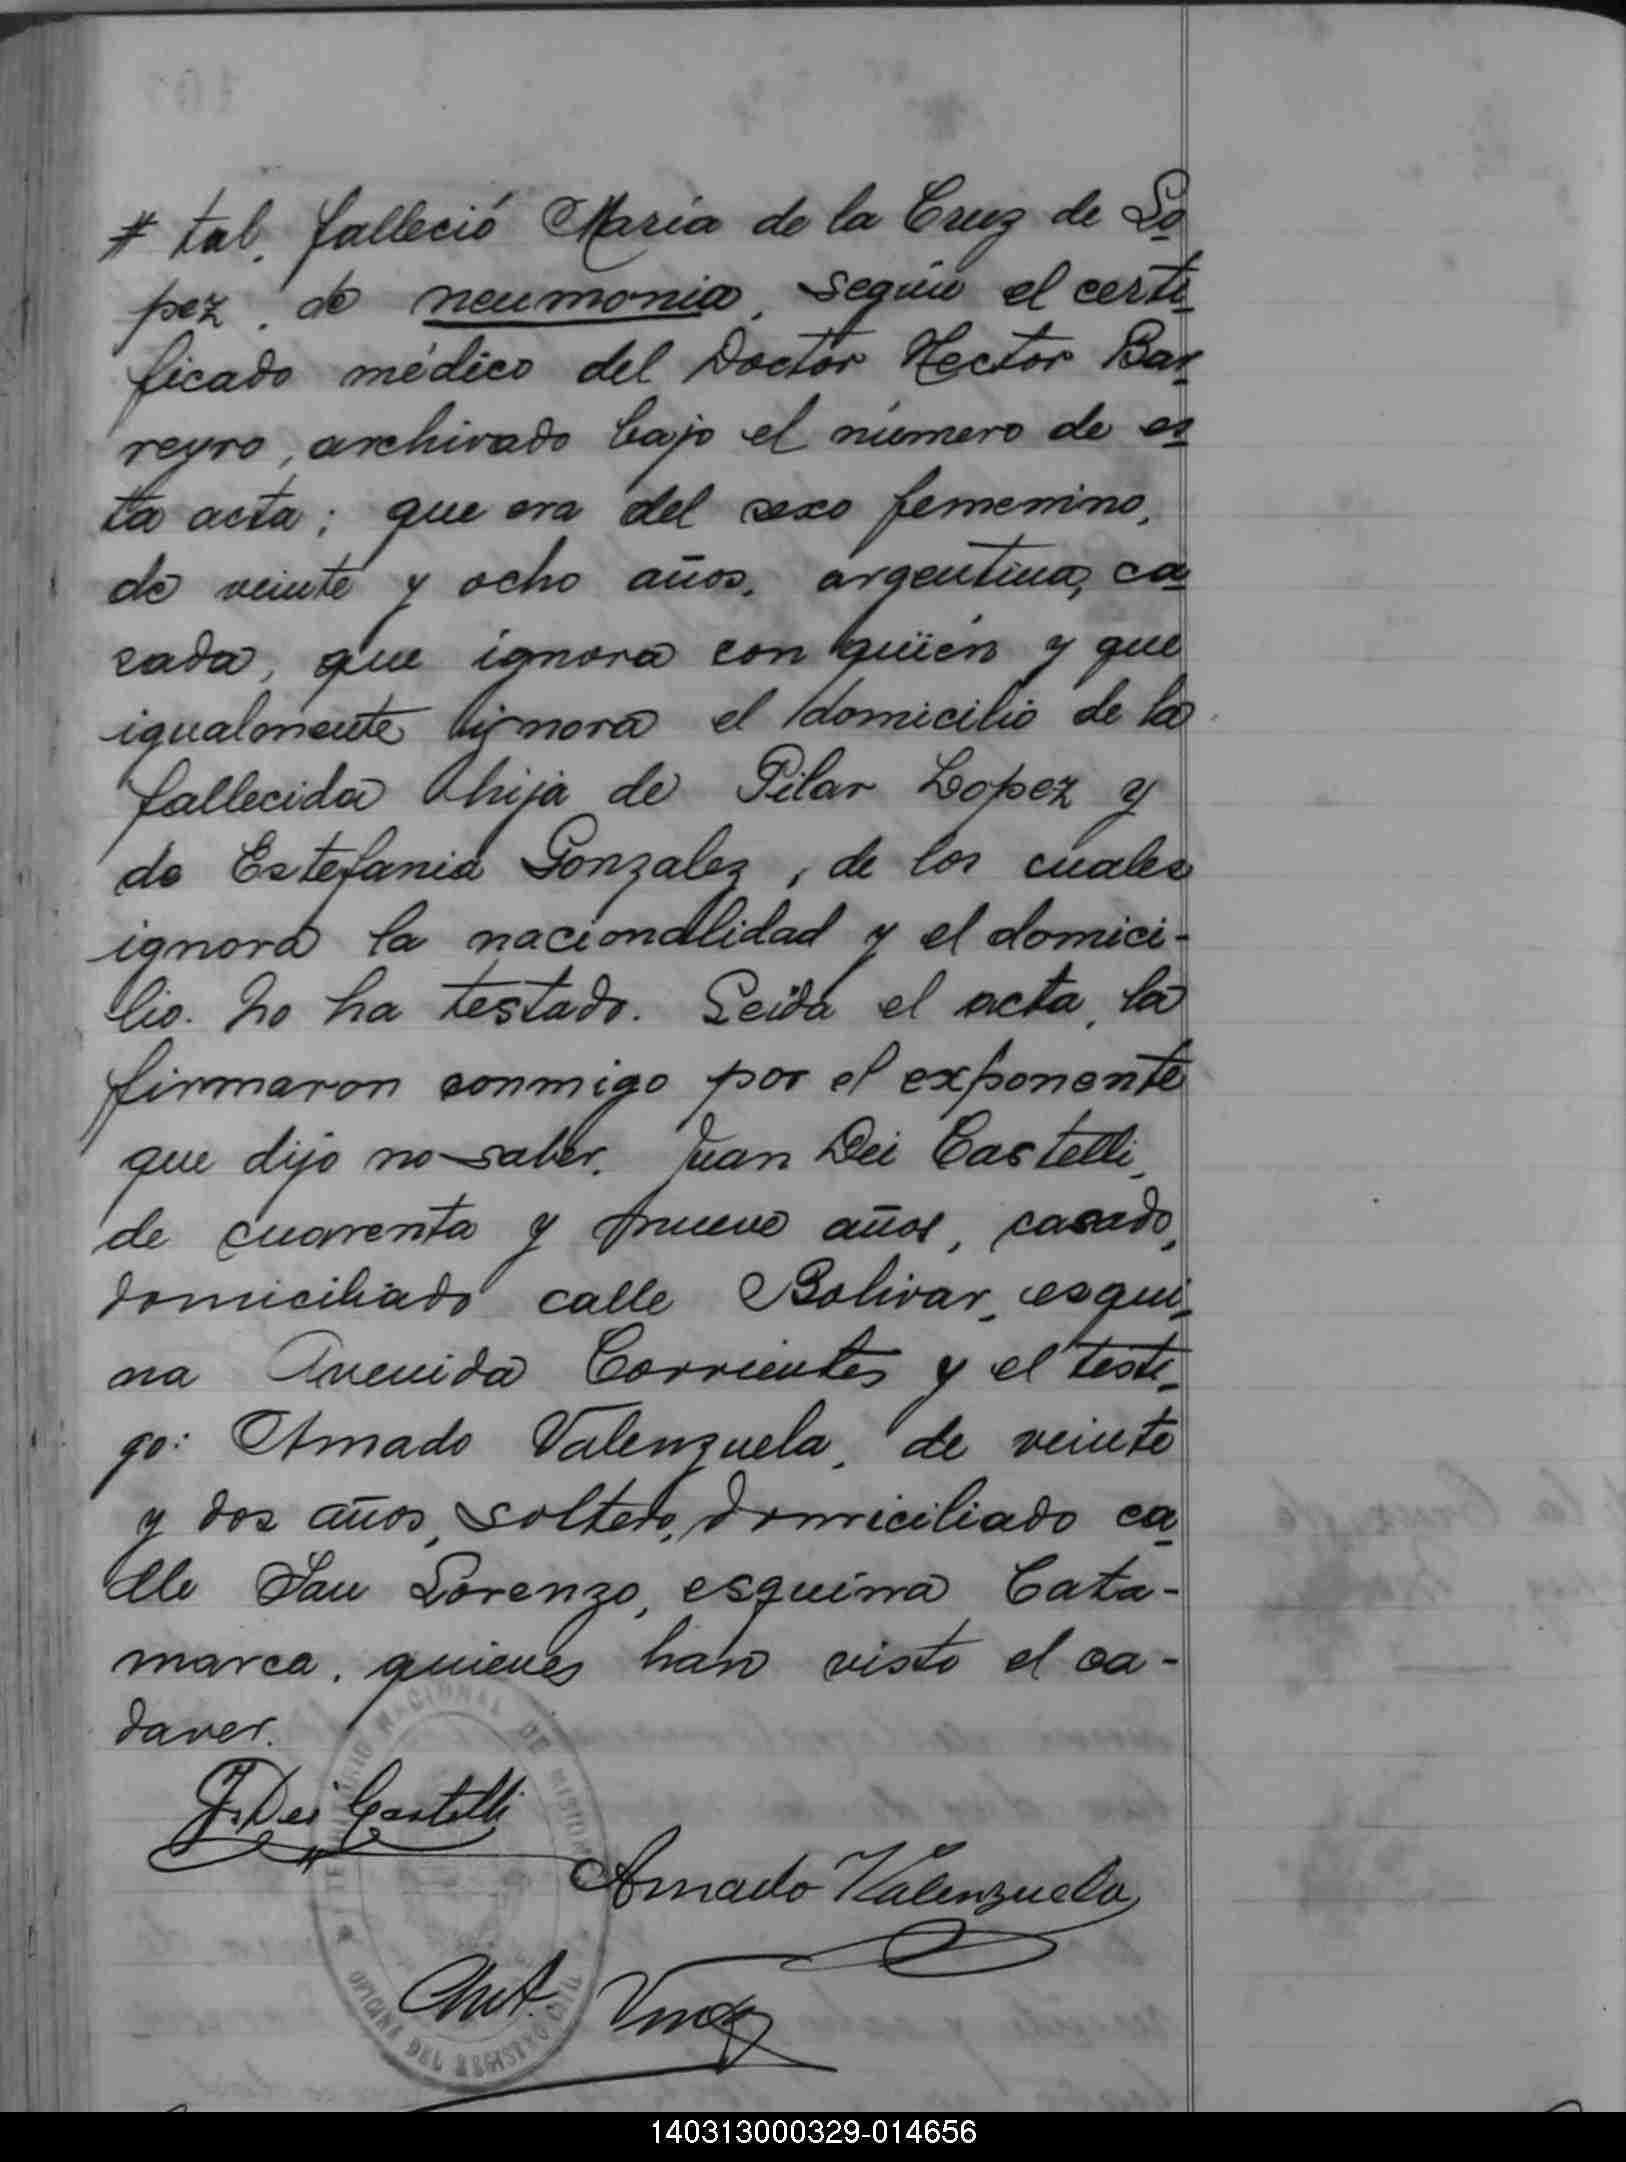 # tal, falleció María de la Cruz de Lo
pez, de neumonia, según el certi
ficado médico del Doctor Hector Bar
reyro, archivado bajo el número de es
ta acta; que era del sexo femenino,
de veinte y ocho años, argentina, ca
sada, que ignora con quién y que
igualmente ignora el domicilio de la
fallecida hija de Pilar Lopez y
de Estefania Gonzalez, de los cuales
ignora la nacionalidad y el domici-
lio. No ha testado. Leida el acta, la
firmaron conmigo por el exponente
que dijo no saber. Juan Dei Castelli,
de cuarenta y nueve años, casado,
domiciliado calle Bolivar, esqui-
na Avenida Corrientes y el testi-
go: Amado Valenzuela, de veinte
y dos años, soltero, domiciliado ca
lle San Lorenzo, esquina Cata-
marca, quienes han visto el ca-
daver.
J. Dei Castelli
Amado Valenzuela
TERRITORIO NACIONAL DE MISIONES
OFICINA DEL REGISTRO CIVIL
140313000329-014656